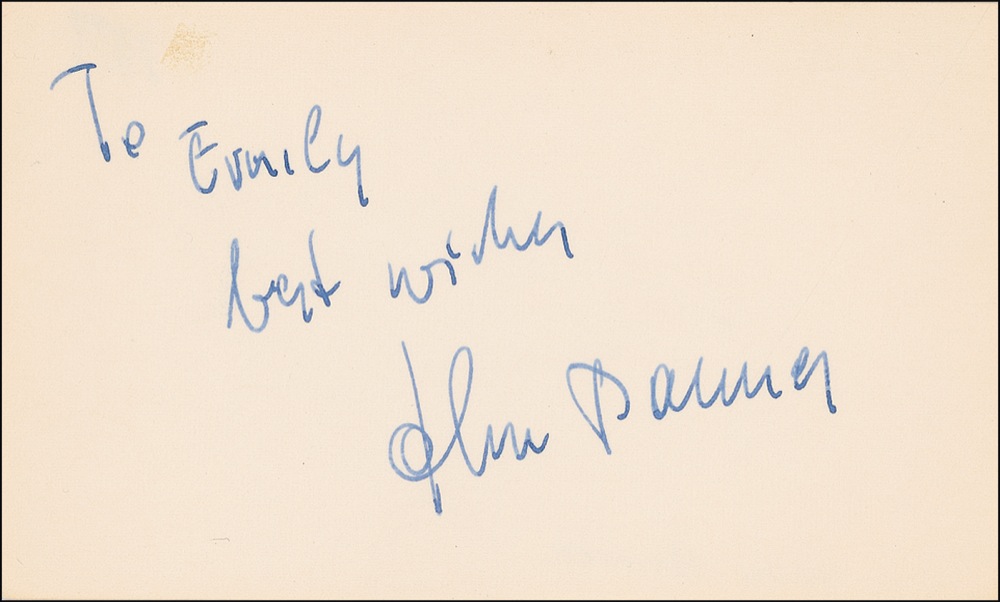 To Emily
best wishes
John Palmer